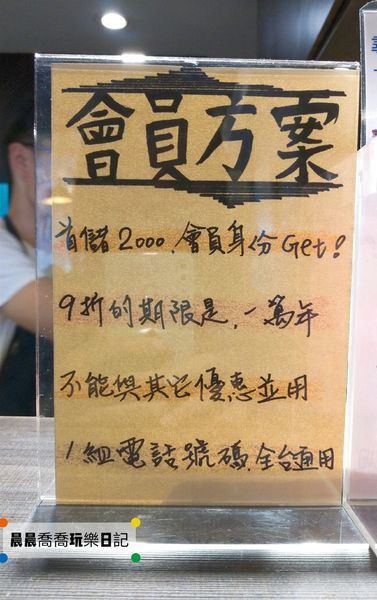 會員方案
首儲2000,會員身份Get!
9折的期限是,一萬年
不能與其它優惠並用
1組電話號碼,全台通用
晨晨喬喬玩樂日記